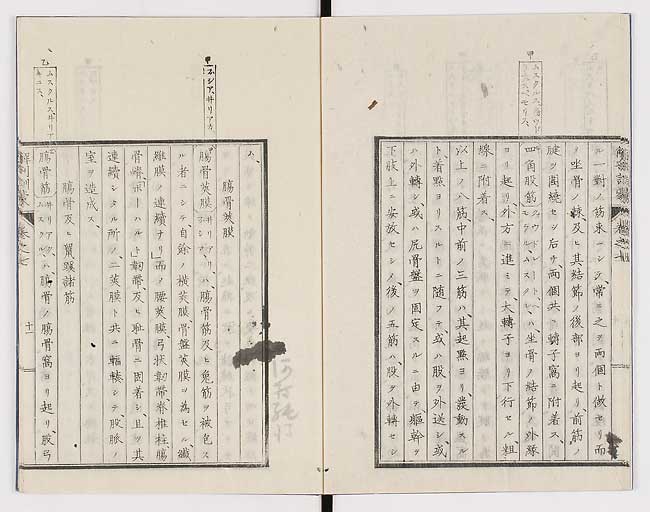 ル一對ノ筋束ニシテ常ニ之ヲ兩個ト做セリ而
ノ坐骨ノ棘及ヒ其結節ノ後部ヨリ起リ前筋ノ
腱ヲ圍繞セシ后チ兩個共ニ轉子窩ニ附着ス
四角股筋 ハ坐骨ノ結節ノ外縁
ヨリ起リ外方ニ進ミテ大轉子ヨリ下行セル粗
線ニ附着ス
以上ノ八筋中前ノ三筋ハ其起點ヨリ發動スル
ト着點ヨリスルトニ随フテ或ハ股ヲ外送シ或
ハ外轉シ或ハ尻骨盤ヲ固定スルニ由テ軀幹ヲ
下肢上ニ安放セシノ後ノ五筋ハ股ヲ外轉セシ
甲
ムスクルス
ハ
腸骨莢膜
腸骨莢膜 ハ腸骨筋及ヒ腰筋ヲ被包ス
ル者ニシテ自餘ノ横莢膜骨盤莢膜ヨ為セル纖
維膜ノ連續ナリ而ノ腰莢膜弓状韌帯脊椎柱腸
骨櫛 韌帯及ヒ耻骨ニ固着シ且ツ其
連續シタル所ノ二莢膜ト共ニ輻輳シテ股脈ノ
室ヲ造成ス
腸骨及ヒ鼠蹊諸筋
腸骨筋 ハ腸骨ノ腸骨窩ヨリ起リ股弓
甲
ホシア、井リアカ
乙
ムスクルス井リア
キユス
解剖訓蒙
巻之七
十二